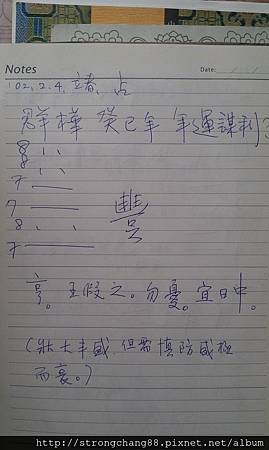 Notes
Date:
'02.2.4. 立春. 占
群樺 癸巳年 年運謀利?
8 、、
8 、、
7 ——
7 ——
8 、、
7 ——
豐
亨。王假之。勿憂。宜日中。
(壯大丰盛, 但需慎防盛極
而衰。)
http://strongchang88.pixnet.net/album